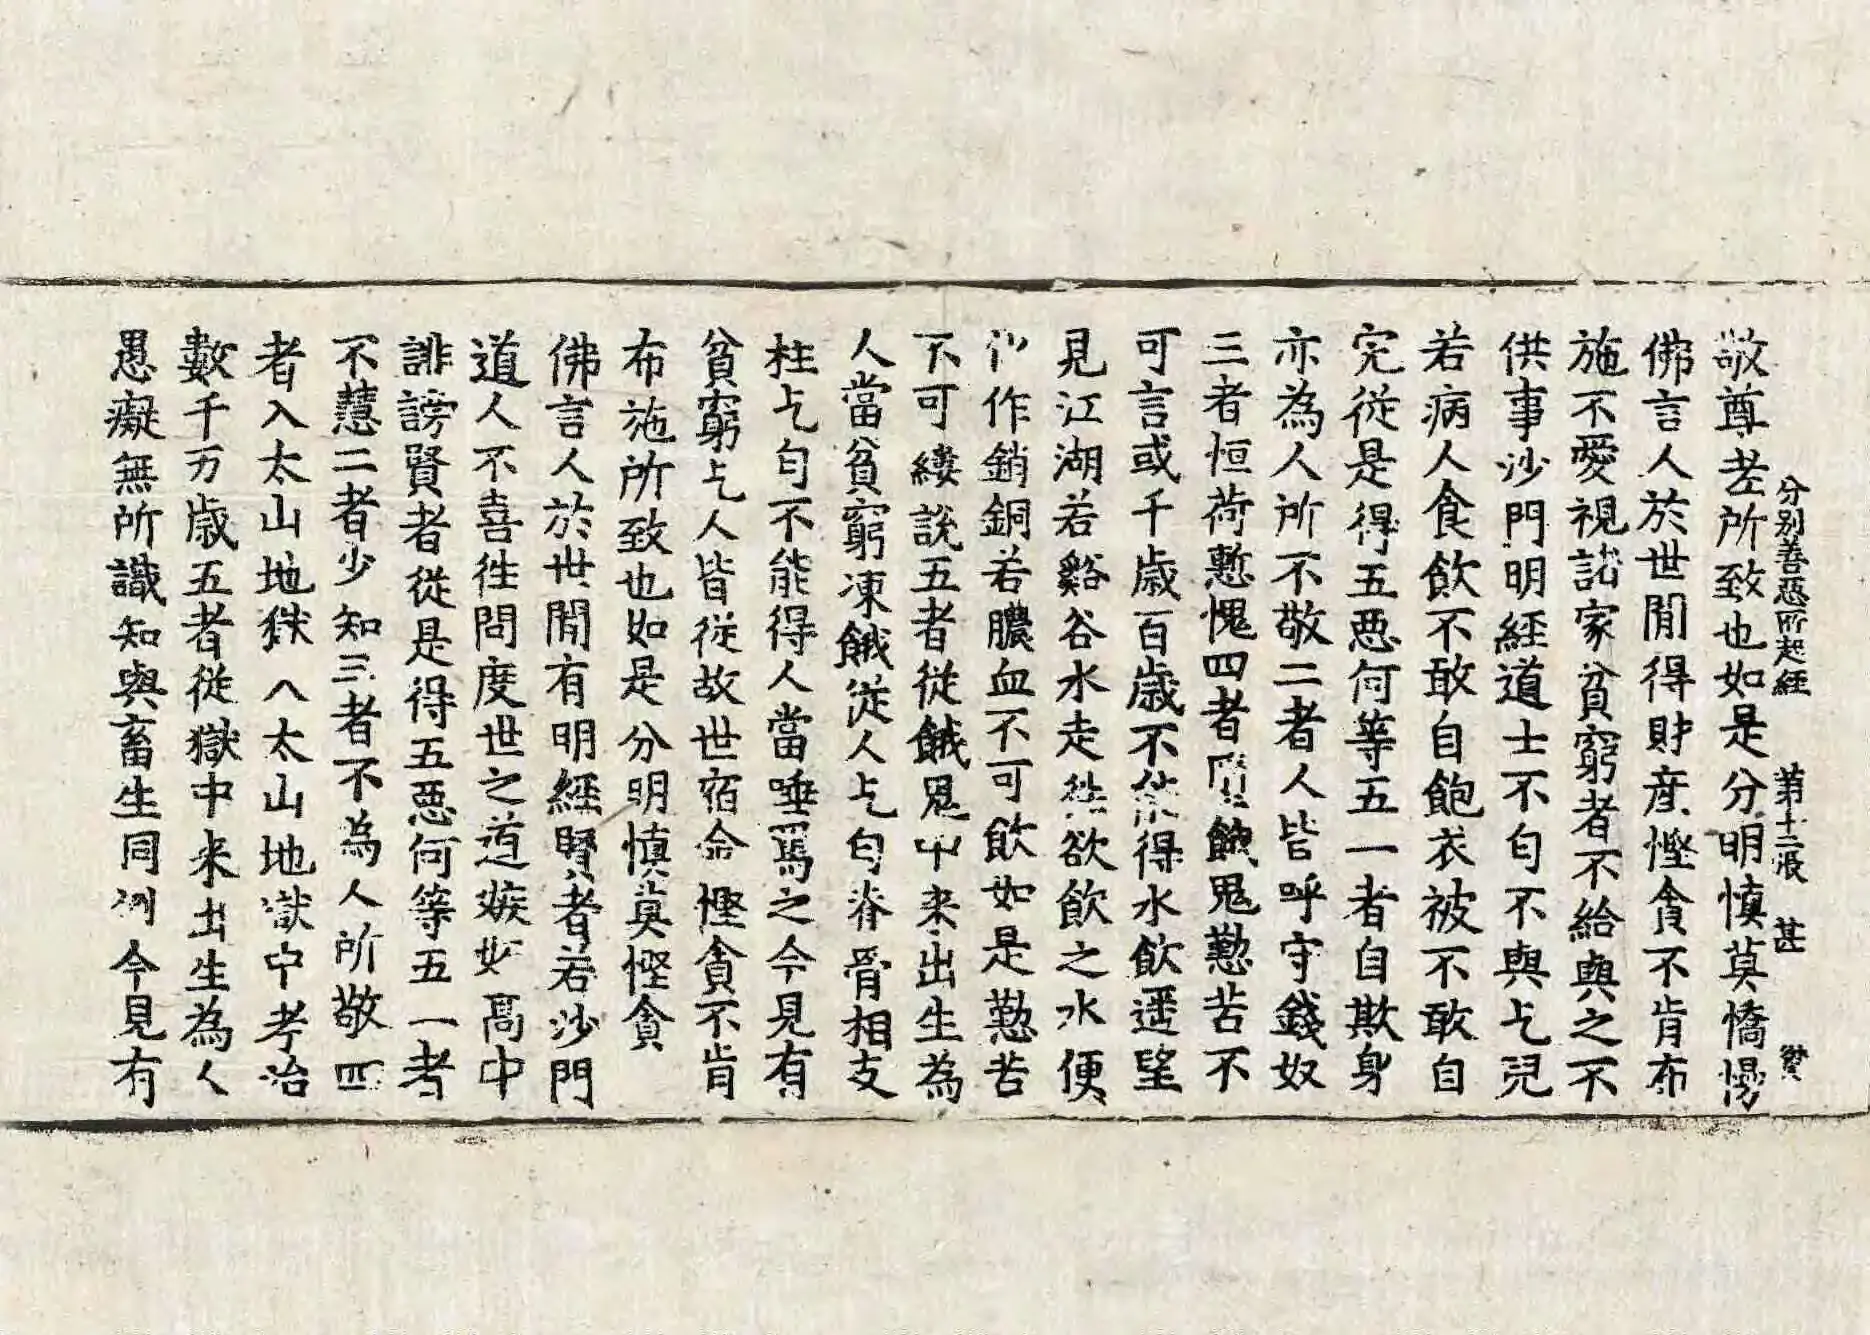 分別善惡所起經　第十二張　甚
敬尊老所致也如是分明慎莫憍慢
佛言人於世間得財産慳貪不肯布
施不愛視諸家貧窮者不給與之不
供事沙門明經道士不匄不與乞兒
若病人食飮不敢自飽衣被不敢自
完從是得五惡何等五一者自欺身
亦為人所不敬二者人皆呼守錢奴
三者恒荷慙愧四者墮餓鬼懃苦不
可言或千歲百歲不能得水飮遥望
見江湖若谿谷水走往欲飮之水便
化作銷銅若膿血不可飮如是懃苦
不可縷說五者從餓鬼中来出生為
人當貧窮凍餓從人乞匄脊骨相支
柱乞匄不能得人當唾罵之今見有
貧窮乞人皆從故世宿命慳貪不肯
布施所致也如是分明慎莫慳貪
佛言人於世間有明經賢者若沙門
道人不喜往問度世之道嫉妬高中
誹謗賢者從是得五惡何等五一者
不慧二者少知三者不為人所敬四
者入太山地獄入太山地獄中考治
數千万歲五者從獄中来出生為人
愚癡無所識知與畜生同列今見有